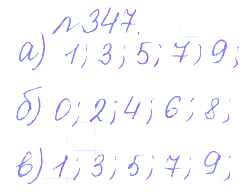 № 347.
а) 1; 3; 5; 7; 9;
б) 0; 2; 4; 6; 8;
в) 1; 3; 5; 7; 9;